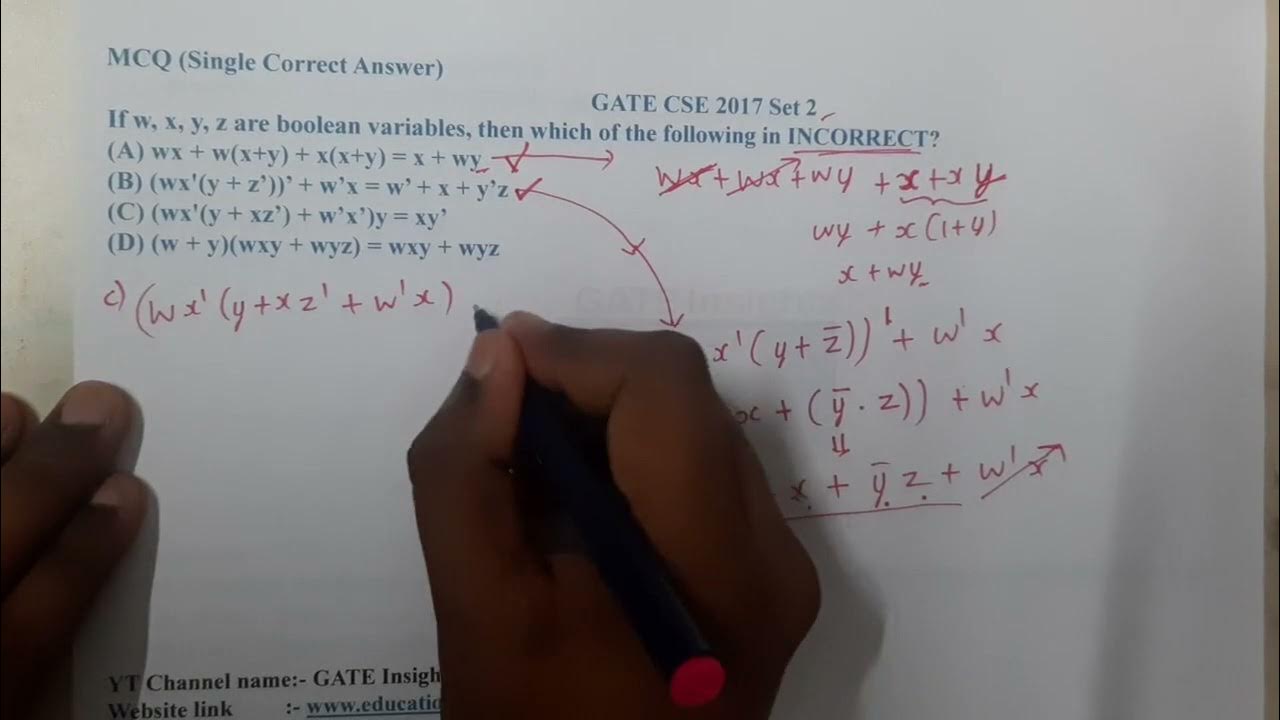 MCQ (Single Correct Answer)
GATE CSE 2017 Set 2
If w, x, y, z are boolean variables, then which of the following in INCORRECT?
(A) wx + w(x+y) + x(x+y) = x + wy
(B) (wx'(y + z’))’ + w’x = w’ + x + y’z
(C) (wx'(y + xz’) + w’x’)y = xy’
(D) (w + y)(wxy + wyz) = wxy + wyz
wx + wx + wy + x + xy
wy + x(1+y)
x + wy
c) (wx'(y+xz' + w'x)
x'(y + z̅))' + w'x
x + (y̅ . z)) + w'x
x + y̅ z + w'x
YT Channel name:- GATE Insigh
Website link :- www.educatio